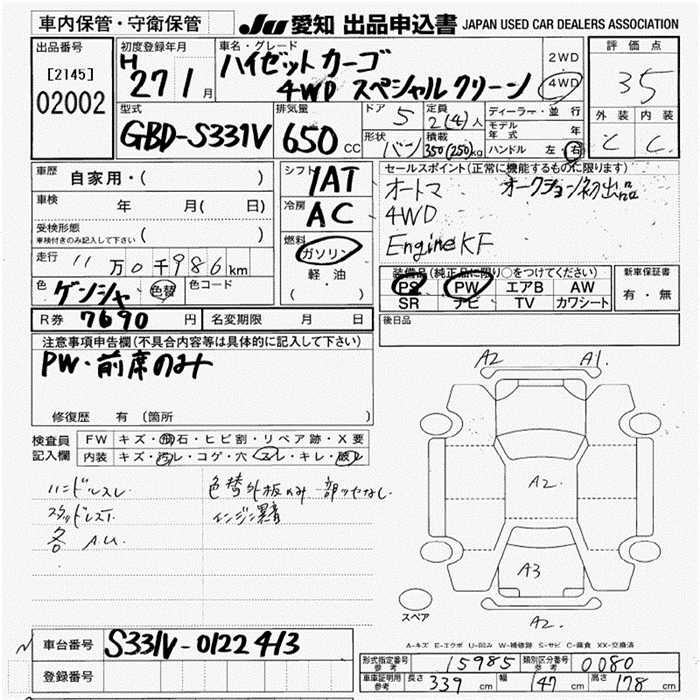 車内保管・守衛保管
JU 愛知 出品申込書 JAPAN USED CAR DEALERS ASSOCIATION
出品番号
[2145]
02002
初度登録年月
H 27 1月
車名・グレード
ハイゼットカーゴ
4WD スペシャルクリーン
2WD
4WD
評価点
3.5
外装 内装
C C
型式
GBD-S331V
排気量
650 cc
ドア 5
形状 バン
定員 2(4)人
積載 350(250)kg
ディーラー・並行
モデル年式 年
ハンドル 左・右
車歴 自家用・( )
車検 年 月( 日)
受検形態 車検付きのみ記入して下さい ( )
走行 11万0千986km
色 ゲンシャ 色替 色コード
シフト 1AT
冷房 AC
燃料 ガソリン
軽・油
( )
セールスポイント(正常に機能するものに限ります)
オートマ オークション初出品
4WD
Engine KF
装備品(純正品に限り○をつけてください)
PS PW エアB AW
SR ナビ TV カワシート
新車保証書
有・無
R券 7690円 名変期限 月 日
後日品
注意事項申告欄(不具合内容等は具体的に記入して下さい)
PW・前席のみ
修復歴 有(箇所 )
検査員記入欄
FW キズ・飛石・ヒビ割・リペア跡・X要
内装 キズ・汚レ・コゲ・穴・スレ・キレ・破レ
ハンドルスレ 色替外板のみ 一部ツヤなし
スタッドレスT.
各 A.U.
A2 A1.
A2.
A3
A2.
スペア
A-キズ E-エクボ U-凹み W-補修跡 S-サビ C-腐食 XX-交換済
車台番号 S331V-0122413
登録番号
形式指定番号 参考 15985 類別区分番号 参考 0080
車庫証明用 参考 長さ 339 cm 幅 147 cm 高さ 178 cm